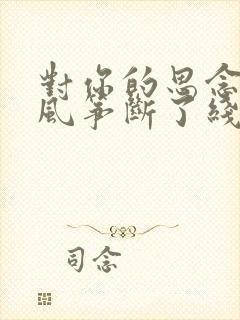 對你的思念
風箏斷了綫
司念